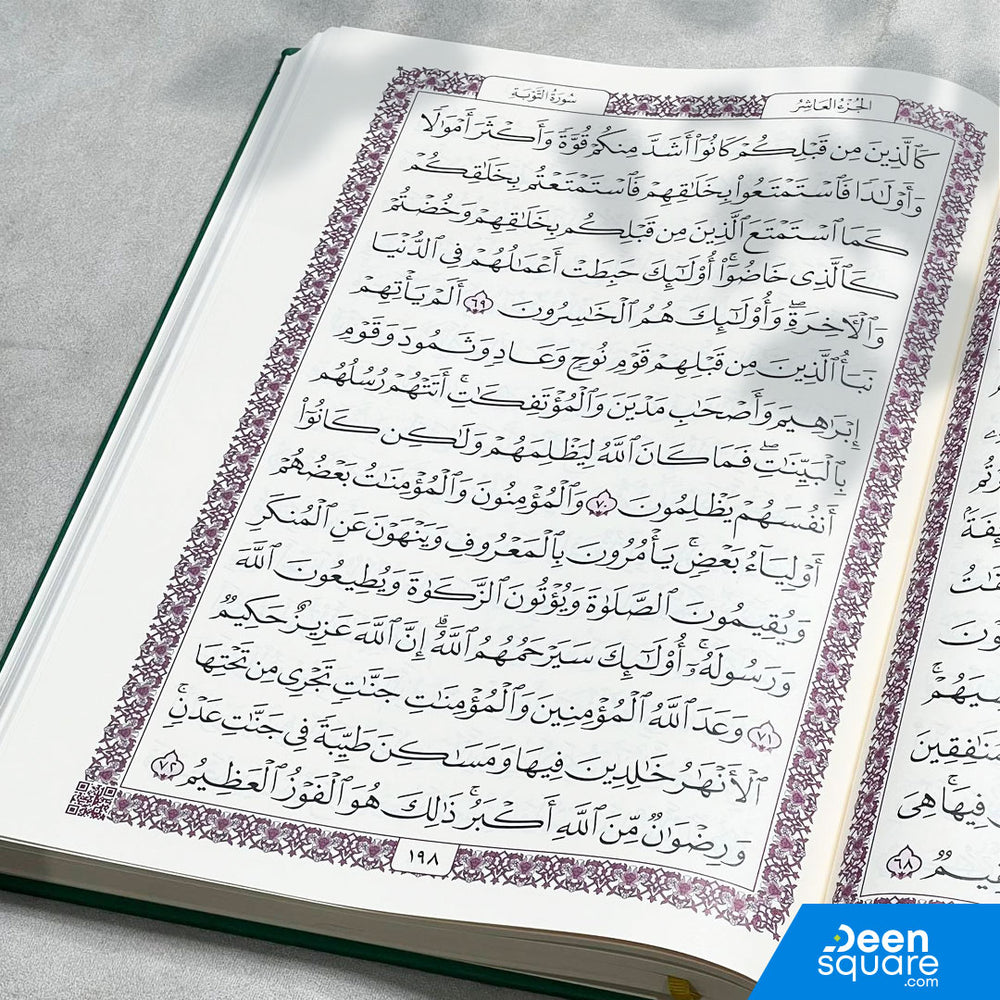 سُورَةُ التَّوْبَةِ
الجُزْءُ العَاشِرُ
كَٱلَّذِينَ مِن قَبْلِكُمْ كَانُوٓا۟ أَشَدَّ مِنكُمْ قُوَّةً وَأَكْثَرَ أَمْوَٰلًا
وَأَوْلَٰدًا فَٱسْتَمْتَعُوا۟ بِخَلَٰقِهِمْ فَٱسْتَمْتَعْتُم بِخَلَٰقِكُمْ
كَمَا ٱسْتَمْتَعَ ٱلَّذِينَ مِن قَبْلِكُم بِخَلَٰقِهِمْ وَخُضْتُمْ
كَٱلَّذِى خَاضُوٓا۟ۚ أُو۟لَٰٓئِكَ حَبِطَتْ أَعْمَٰلُهُمْ فِى ٱلدُّنْيَا
وَٱلْءَاخِرَةِۖ وَأُو۟لَٰٓئِكَ هُمُ ٱلْخَٰسِرُونَ ٦٩ أَلَمْ يَأْتِهِمْ
نَبَأُ ٱلَّذِينَ مِن قَبْلِهِمْ قَوْمِ نُوحٍ وَعَادٍ وَثَمُودَ وَقَوْمِ
إِبْرَٰهِيمَ وَأَصْحَٰبِ مَدْيَنَ وَٱلْمُؤْتَفِكَٰتِۚ أَتَتْهُمْ رُسُلُهُم
بِٱلْبَيِّنَٰتِۖ فَمَا كَانَ ٱللَّهُ لِيَظْلِمَهُمْ وَلَٰكِن كَانُوٓا۟
أَنفُسَهُمْ يَظْلِمُونَ ٧٠ وَٱلْمُؤْمِنُونَ وَٱلْمُؤْمِنَٰتُ بَعْضُهُمْ
أَوْلِيَآءُ بَعْضٍۚ يَأْمُرُونَ بِٱلْمَعْرُوفِ وَيَنْهَوْنَ عَنِ ٱلْمُنكَرِ
وَيُقِيمُونَ ٱلصَّلَوٰةَ وَيُؤْتُونَ ٱلزَّكَوٰةَ وَيُطِيعُونَ ٱللَّهَ
وَرَسُولَهُۥٓۚ أُو۟لَٰٓئِكَ سَيَرْحَمُهُمُ ٱللَّهُۗ إِنَّ ٱللَّهَ عَزِيزٌ حَكِيمٌ
٧١ وَعَدَ ٱللَّهُ ٱلْمُؤْمِنِينَ وَٱلْمُؤْمِنَٰتِ جَنَّٰتٍ تَجْرِى مِن تَحْتِهَا
ٱلْأَنْهَٰرُ خَٰلِدِينَ فِيهَا وَمَسَٰكِنَ طَيِّبَةً فِى جَنَّٰتِ عَدْنٍۚ
وَرِضْوَٰنٌ مِّنَ ٱللَّهِ أَكْبَرُۚ ذَٰلِكَ هُوَ ٱلْفَوْزُ ٱلْعَظِيمُ ٧٢
١٩٨
فِيهَاۚ هِىَ
٦٨
Deen
square
.com